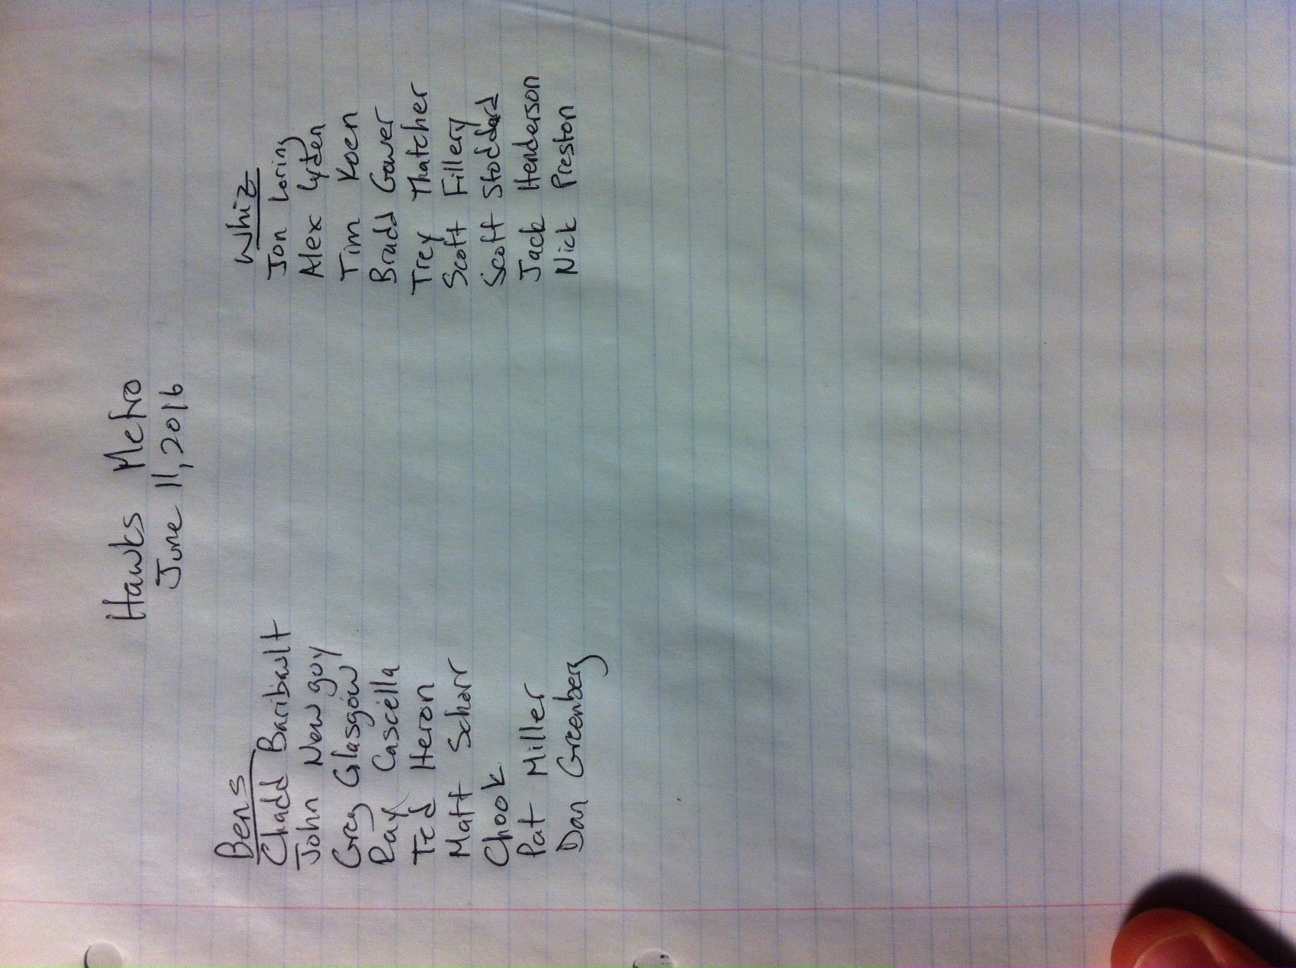 Hawks Metro
June 11, 2016
Bens
Chadd Baribault
John New guy
Greg Glasgow
Ray Cascella
Ted Heron
Matt Scharr
Chook
Pat Miller
Dan Greenberg
Whiz
Jon Loring
Alex Lyden
Tim Koen
Bradd Gower
Trey Thatcher
Scott Fillery
Scott Stoddard
Jack Henderson
Nick Preston